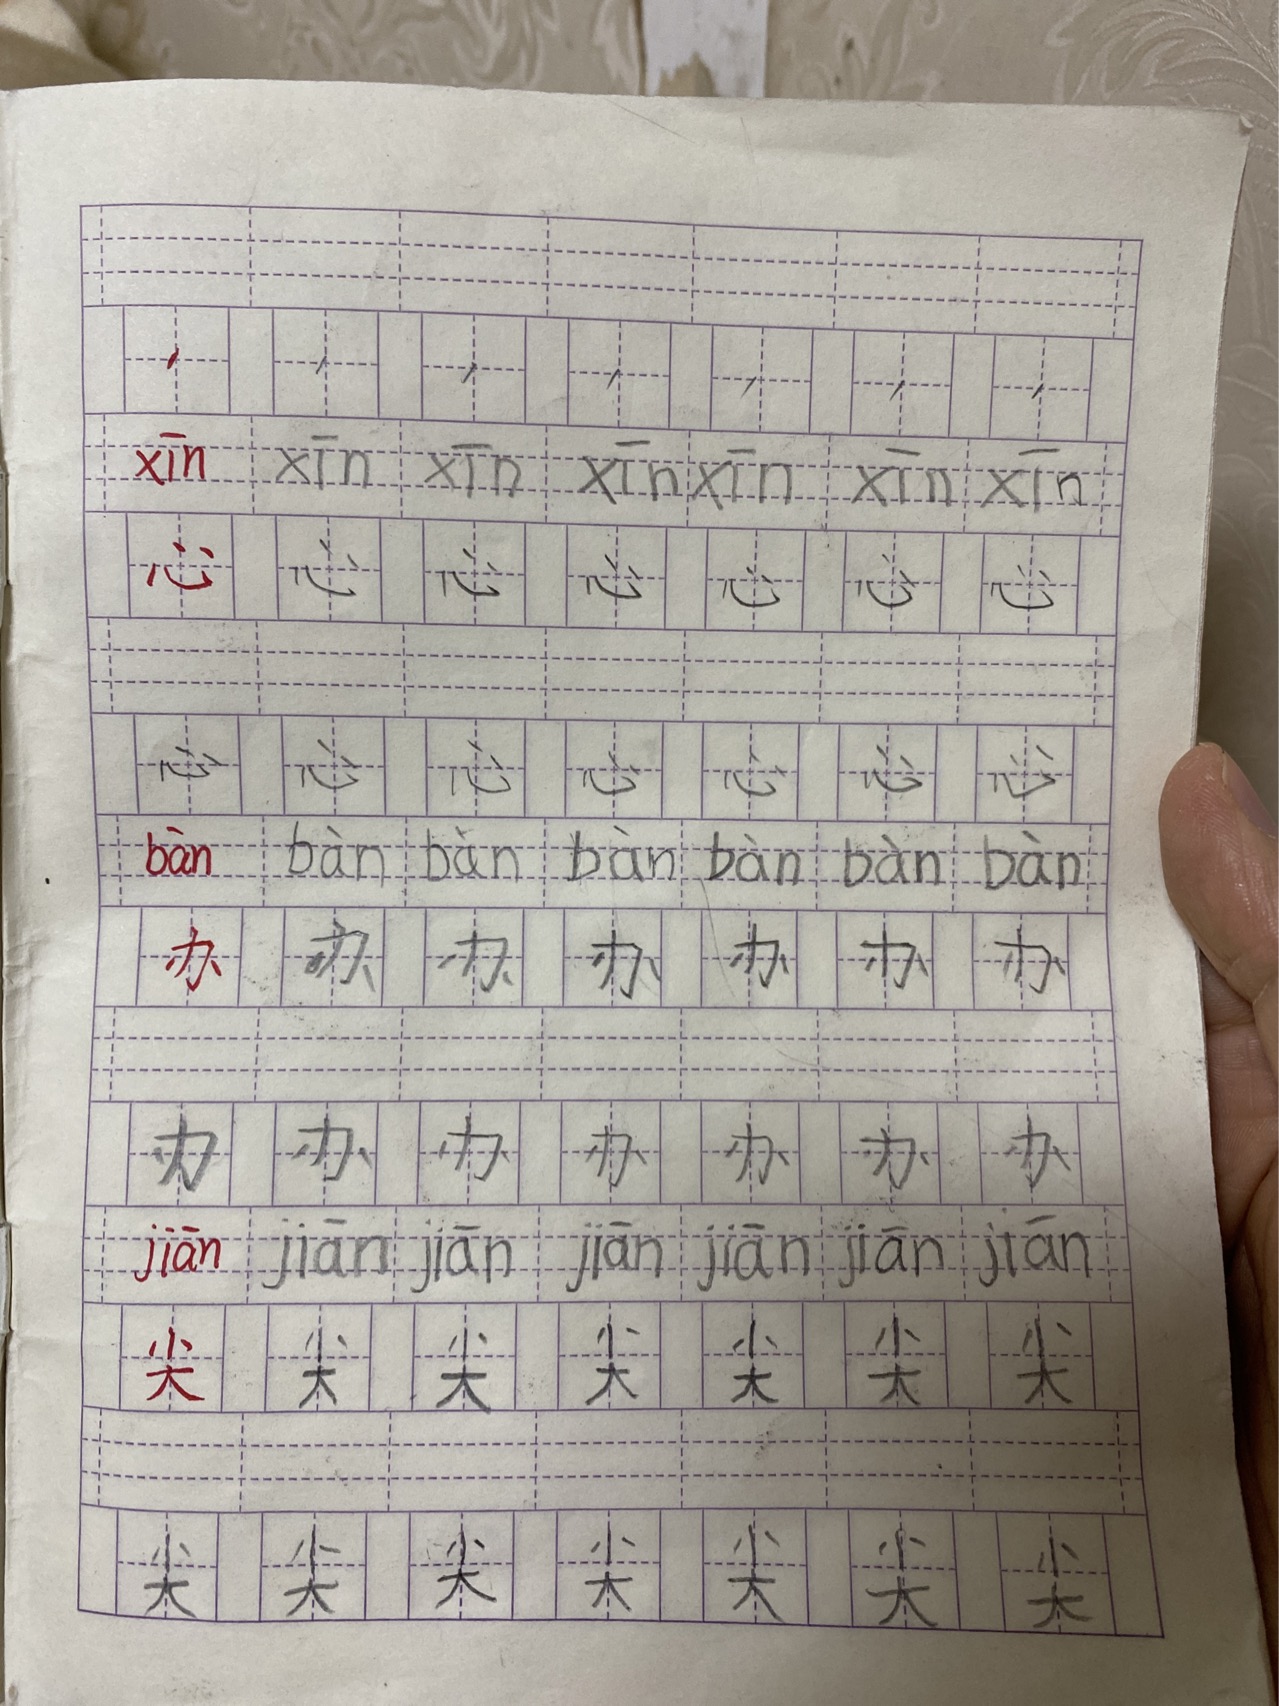 丿 丿 丿 丿 丿 丿 丿
xīn xīn xīn xīn xīn xīn xīn
心 心 心 心 心 心 心
心 心 心 心 心 心 心
bàn bàn bàn bàn bàn bàn bàn
办 办 办 办 办 办 办
办 办 办 办 办 办 办
jiān jiān jiān jiān jiān jiān jiān
尖 尖 尖 尖 尖 尖 尖
尖 尖 尖 尖 尖 尖 尖